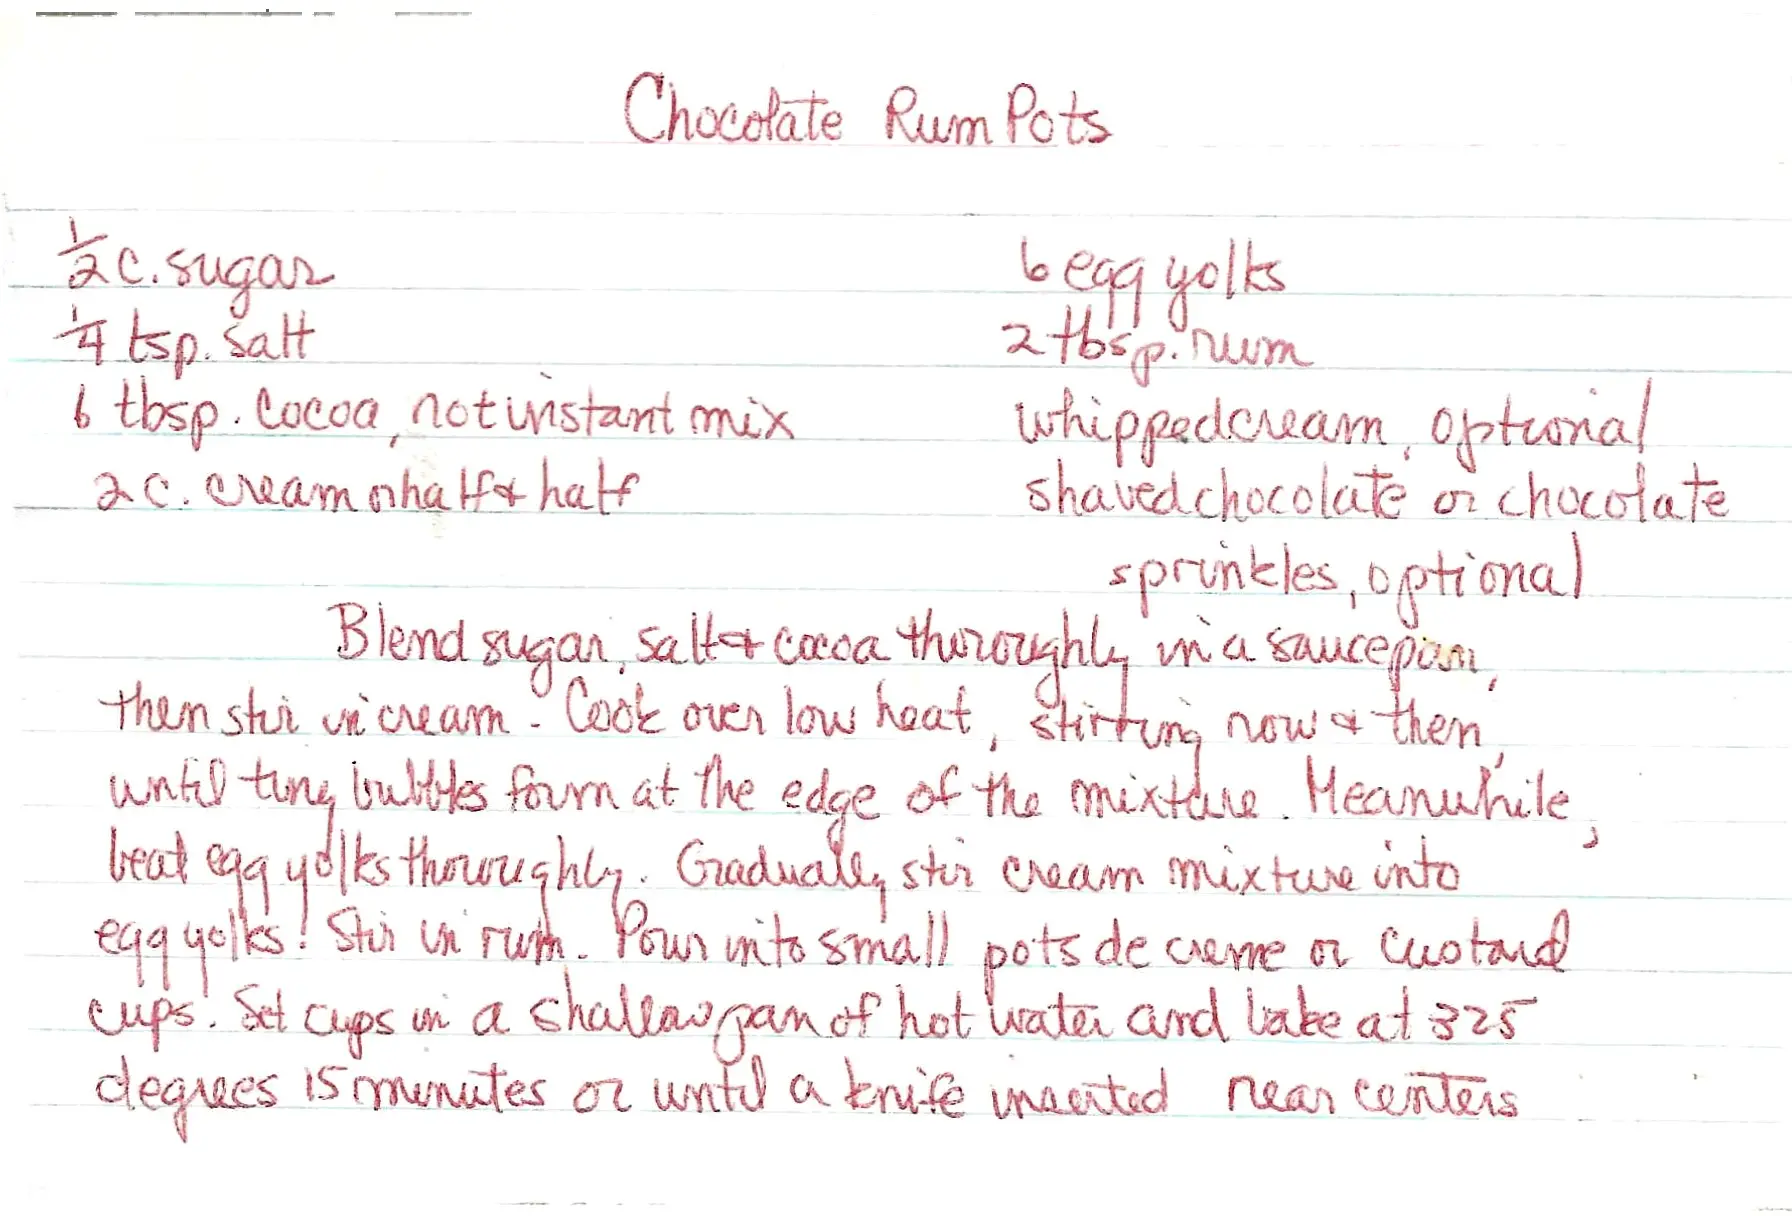 Chocolate Rum Pots
1/2 c. sugar
1/4 tsp. salt
6 tbsp. cocoa, not instant mix
2 c. cream or half & half
6 egg yolks
2 tbsp. rum
whipped cream, optional
shaved chocolate or chocolate
sprinkles, optional
Blend sugar, salt & cocoa thoroughly in a saucepan,
then stir in cream. Cook over low heat, stirring now & then,
until tiny bubbles form at the edge of the mixture. Meanwhile,
beat egg yolks thoroughly. Gradually stir cream mixture into
egg yolks! Stir in rum. Pour into small pots de creme or custard
cups. Set cups in a shallow pan of hot water and bake at 325
degrees 15 minutes or until a knife inserted near centers